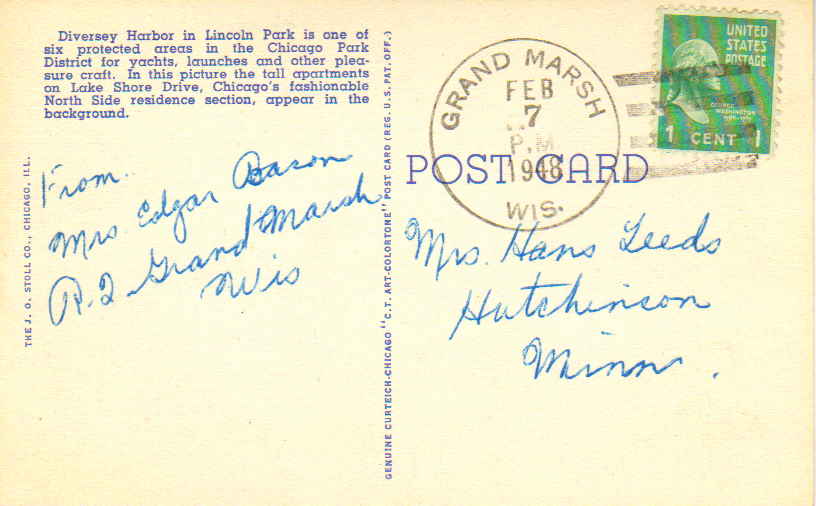 Diversey Harbor in Lincoln Park is one of
six protected areas in the Chicago Park
District for yachts, launches and other plea-
sure craft. In this picture the tall apartments
on Lake Shore Drive, Chicago's fashionable
North Side residence section, appear in the
background.
From.
Mrs. Edgar Bacon
R.2 Grand Marsh
Wis
THE J. O. STOLL CO., CHICAGO, ILL.
GENUINE CURTEICH-CHICAGO "C.T. ART-COLORTONE" POST CARD (REG. U.S. PAT. OFF.)
GRAND MARSH
FEB
7
P.M
1948
WIS.
UNITED
STATES
POSTAGE
GEORGE
WASHINGTON
1 CENT 1
POST CARD
Mrs. Hans Leeds
Hutchinson
Minn.